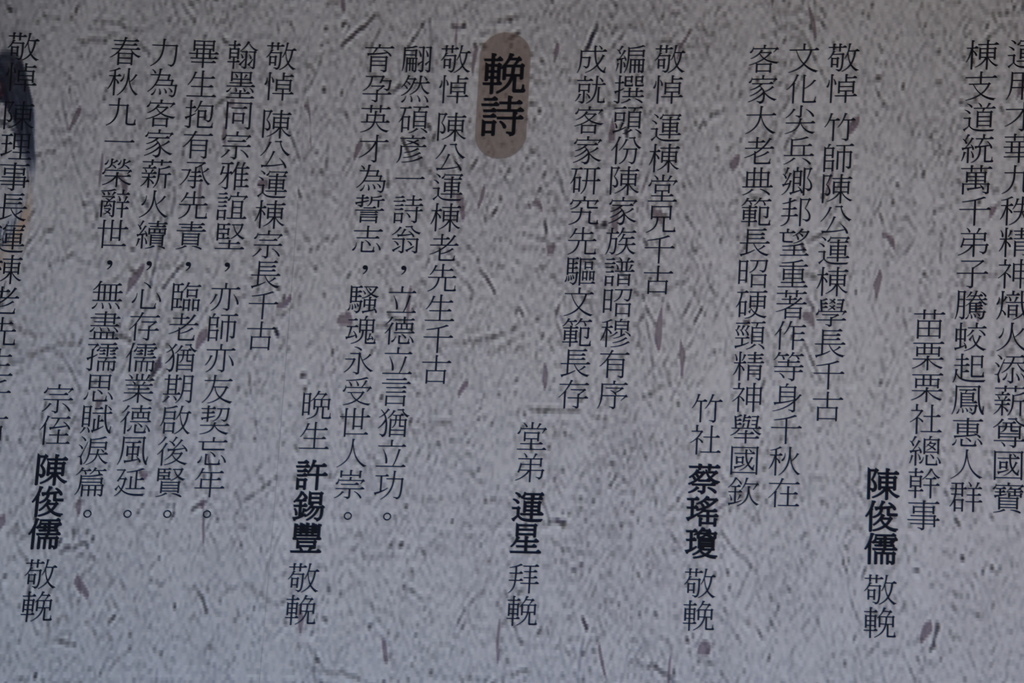 運用才華九秩精神熾火添薪尊國寶
棟支道統萬千弟子騰蛟起鳳惠人群
苗栗栗社總幹事
陳俊儒 敬輓
敬悼 竹師陳公運棟學長千古
文化尖兵鄉邦望重著作等身千秋在
客家大老典範長昭硬頸精神舉國欽
竹社 蔡瑤瓊 敬輓
敬悼 運棟堂兄千古
編撰頭份陳家族譜昭穆有序
成就客家研究先驅文範長存
堂弟 運星 拜輓
輓詩
敬悼 陳公運棟老先生千古
翩然碩彥一詩翁，立德立言猶立功。
育孕英才為誓志，騷魂永受世人崇。
晚生 許錫豐 敬輓
敬悼 陳公運棟宗長千古
翰墨同宗雅誼堅，亦師亦友契忘年。
畢生抱有承先責，臨老猶期啟後賢。
力為客家薪火續，心存儒業德風延。
春秋九一榮辭世，無盡孺思賦淚篇。
宗侄 陳俊儒 敬輓
敬悼 陳理事長運棟老先生千古